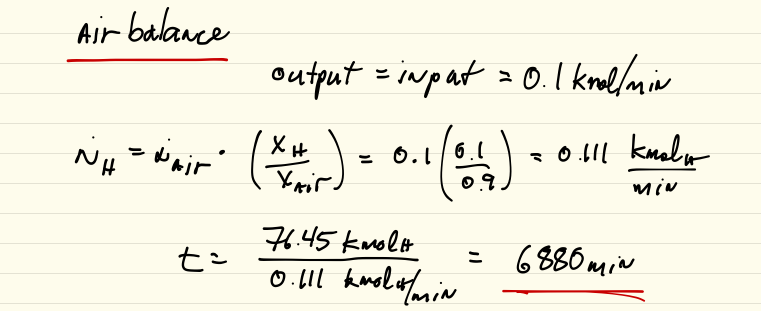 Air balance
output = input = 0.1 kmol/min
ṅ_H = ṅ_Air · (X_H / X_Air) = 0.1 (0.1 / 0.9) = 0.111 kmol_H / min
t = 76.45 kmol_H / 0.111 kmol_H/min = 6880 min